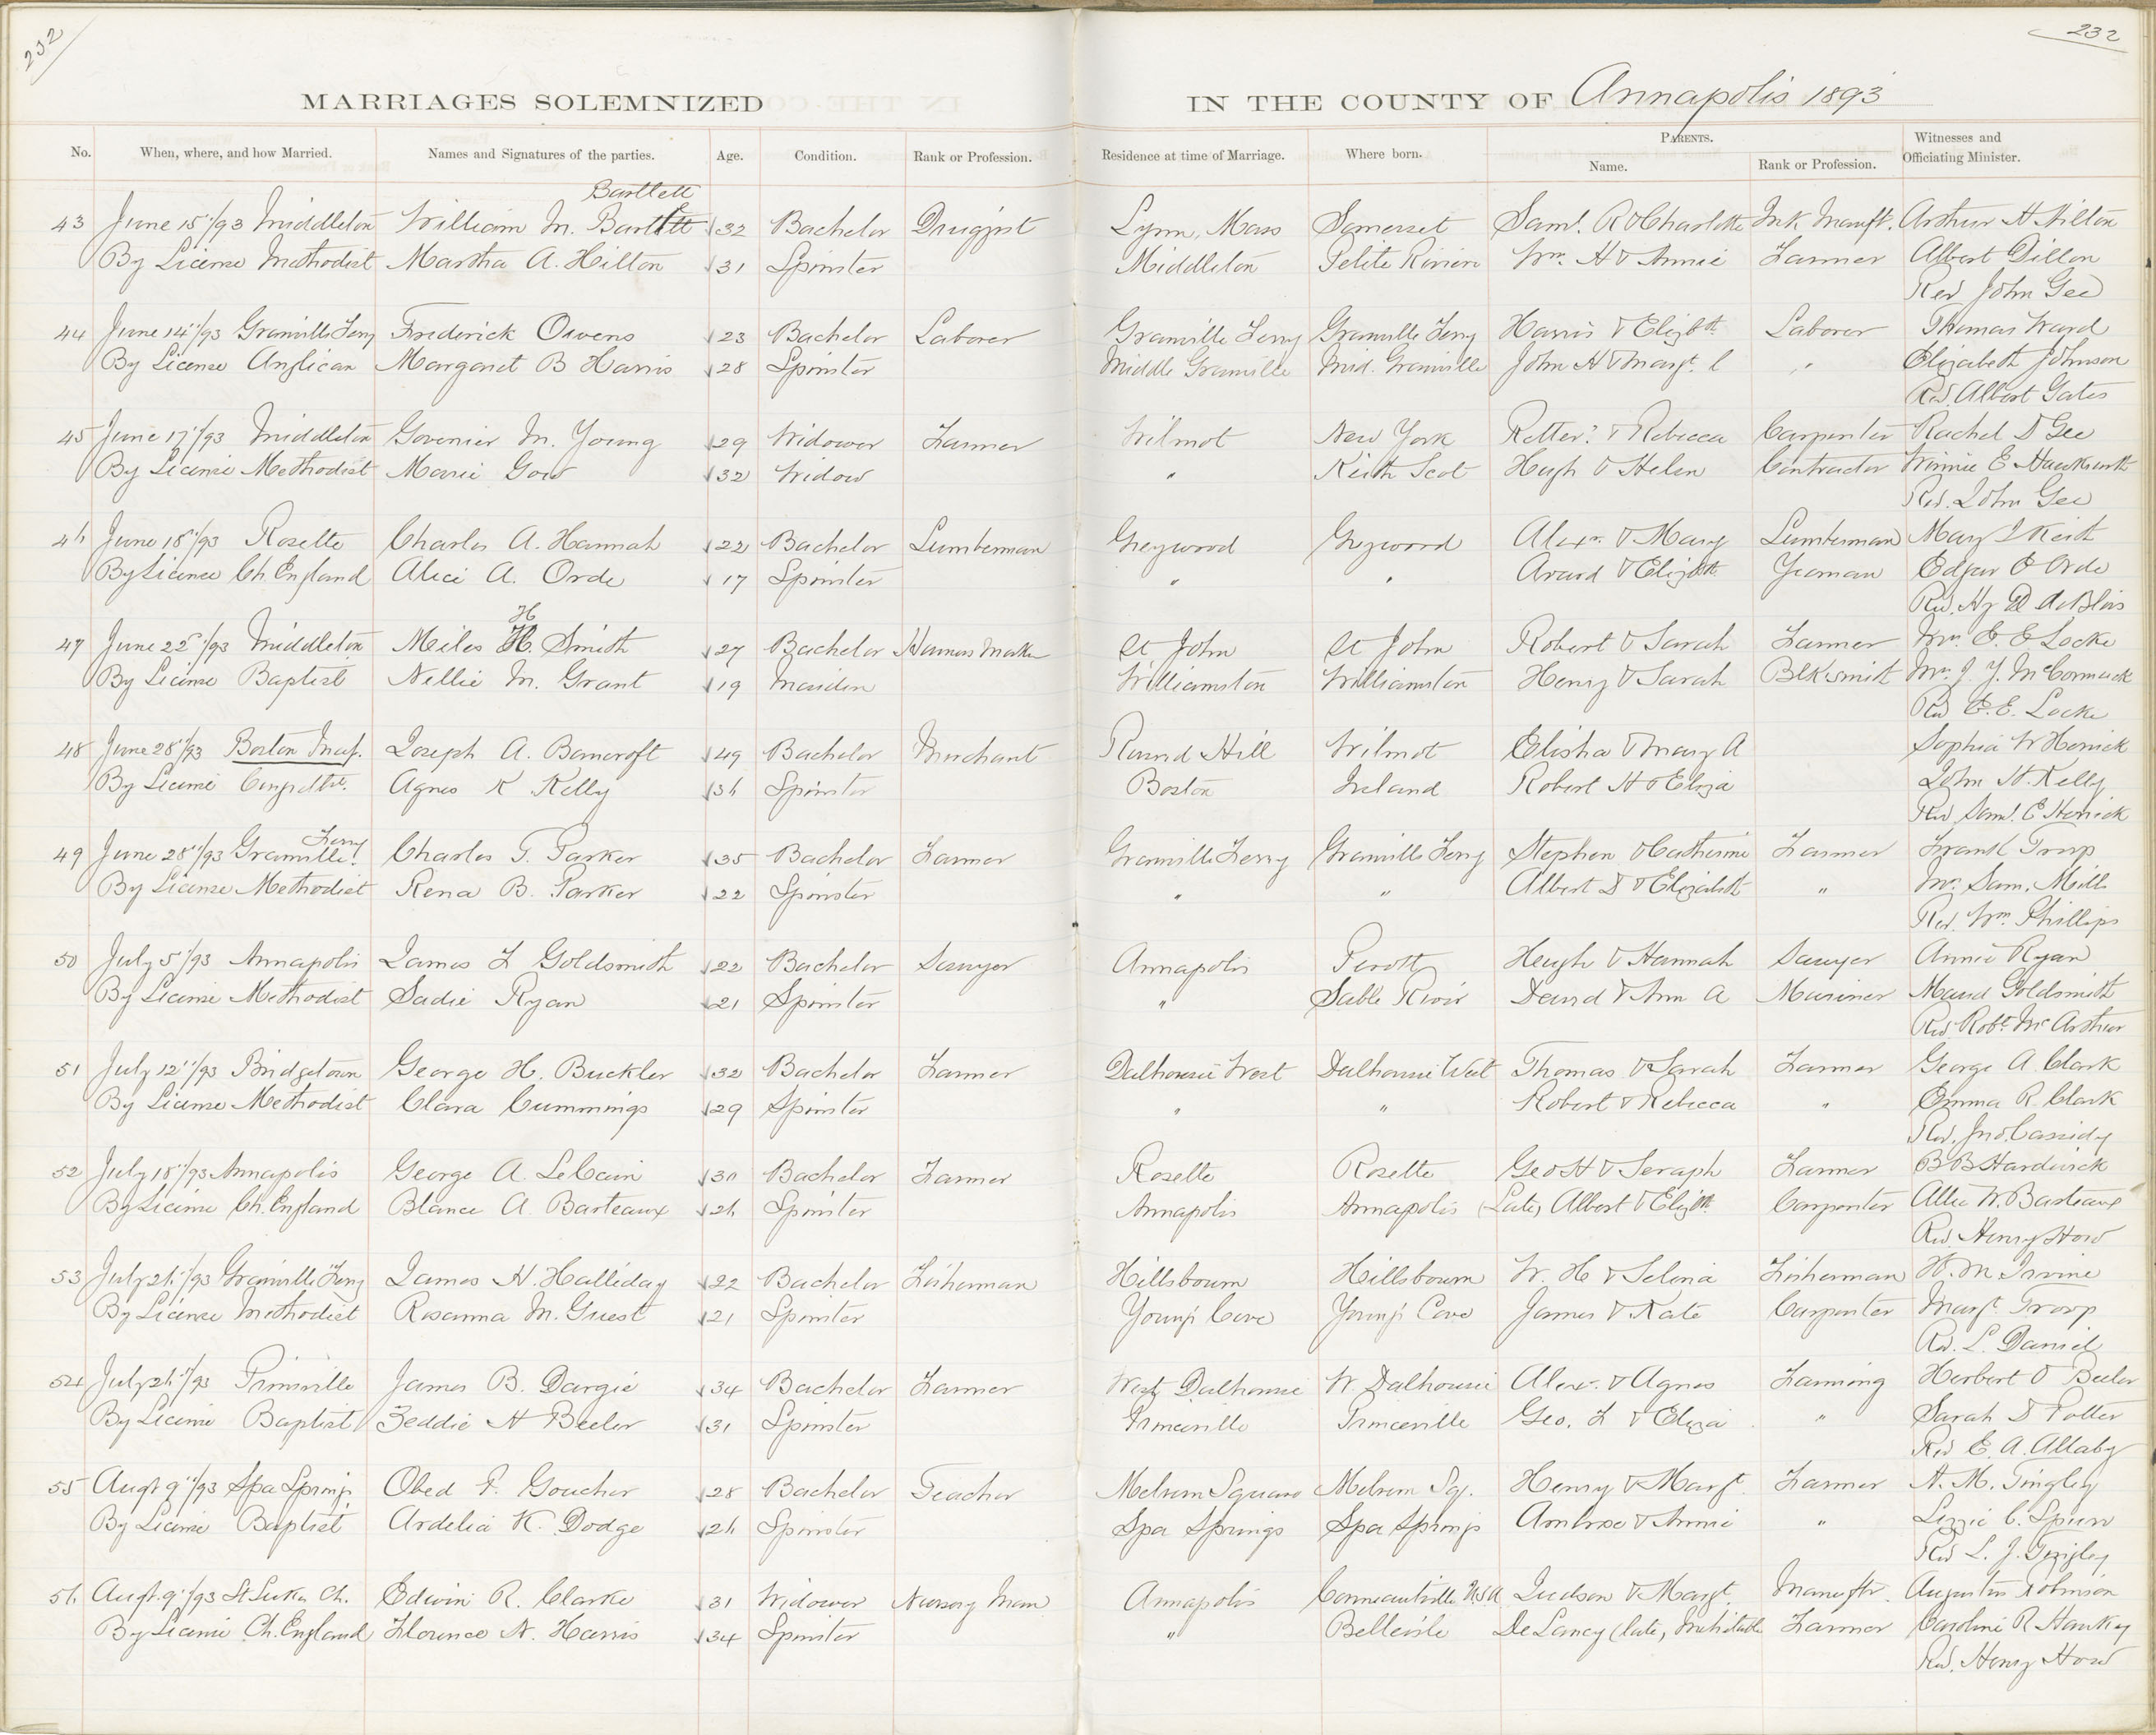 232
232
MARRIAGES SOLEMNIZED IN THE COUNTY OF Annapolis 1893
No. When, where, and how Married. Names and Signatures of the parties. Age. Condition. Rank or Profession. Residence at time of Marriage. Where born. PARENTS. Name. Rank or Profession. Witnesses and Officiating Minister.
Bartlett
43 June 15"/93 Middleton William M. Bartlett 32 Bachelor Druggist Lynn, Mass Somerset Saml. R & Charlotte Ink Manuft. Arthur H Hilton
By License Methodist Martha A. Hilton 31 Spinster Middleton Petite Riviere Wm. H & Annie Farmer Albert Dillon
Rev John Gee
44 June 14"/93 Granville Ferry Frederick Owens 23 Bachelor Laborer Granville Ferry Granville Ferry Harris & Elizbth Laborer Thomas Ward
By License Anglican Margaret B Harris 28 Spinster Middle Granville Mid. Granville John H & Margt. C " Elizabeth Johnson
Rev. Albert Gates
45 June 17"/93 Middleton Govenier M. Young 29 Widower Farmer Wilmot New York & Rebecca Carpenter Rachel D Gee
By License Methodist Marie Gow 32 Widow " Keith Scot Hugh & Helen Contractor Winnie E
Rev. John Gee
46 June 18"/93 Rosette Charles A. Hannah 22 Bachelor Lumberman Greywood Greywood Alexr. & Mary Lumberman Mary J Keith
By Licence Ch. England Alice A. Orde 17 Spinster " " Avard & Elizbth Yeoman Edgar O Orde
Rev. Hy D de Blois
H
47 June 22"/93 Middleton Miles H. Smith 27 Bachelor Harness Maker St John St John Robert & Sarah Farmer Mrs. E. E Locke
By License Baptist Nellie M. Grant 19 Maiden Williamston Williamston Henry & Sarah Blksmith Mrs. J. Y. McCormick
Rev E. E. Locke
48 June 28"/93 Boston Mass. Joseph A. Bancroft 49 Bachelor Merchant Round Hill Wilmot Elisha & Mary A Sophia W Herrick
By License Agnes K Kelly 36 Spinster Boston Ireland Robert H & Eliza John H. Kelly
Rev Saml. E Herrick
Ferry
49 June 28"/93 Granville. Charles T. Parker 35 Bachelor Farmer Granville Ferry Granville Ferry Stephen & Catherine Farmer Frank Troop
By License Methodist Rena B. Parker 22 Spinster " " Albert D & Elizabeth " Mrs. Sam. Mills
Rev. Wm. Phillips
50 July 5"/93 Annapolis James L Goldsmith 22 Bachelor Sawyer Annapolis Perott Hugh & Hannah Sawyer Annie Ryan
By License Methodist Sadie Ryan 21 Spinster " Sable River David & Ann A Mariner Maud Goldsmith
Rev. Robt. McArthur
51 July 12"/93 Bridgetown George H. Buckler 32 Bachelor Farmer Dalhousie West Dalhousie West Thomas & Sarah Farmer George A. Clark
By License Methodist Clara Cummings 29 Spinster " " Robert & Rebecca " Emma R. Clark
Rev. Jno. Cassidy
52 July 18"/93 Annapolis George A. LeCain 30 Bachelor Farmer Rosette Rosette Geo H & Seraph Farmer B B Hardwick
By License Ch. England Blance A. Barteaux 26 Spinster Annapolis Annapolis (Late) Albert & Elizbth Carpenter Allie W. Barteaux
Rev. Henry How
53 July 26"/93 Granville Ferry James H. Halliday 22 Bachelor Fisherman Hillsbourn Hillsbourn W. H & Selena Fisherman H. M Irvine
By License Methodist Rosanna M. Guest 21 Spinster Young's Cove Young's Cove James & Kate Carpenter Margt. Troop
Rev. L. Daniel
54 July 26"/93 Princeville James B. Dargie 34 Bachelor Farmer West Dalhousie W. Dalhousie Alexr. & Agnes Farming Herbert O Beeler
By License Baptist Zeddie H Beeler 31 Spinster Princeville Princeville Geo. L & Eliza " Sarah D Potter
Rev E. A. Allaby
55 Augt 9"/93 Spa Springs Obed P. Goucher 28 Bachelor Teacher Melvern Square Melvern Sq. Henry & Margt. Farmer A. M. Tingley
By License Baptist Ardelia K. Dodge 26 Spinster Spa Springs Spa Springs Ambrose & Annie " Lizzie C. Spurr
Rev L. J. Tingley
56 Augt. 9"/93 St Lukes Ch. Edwin R. Clarke 31 Widower Nursery Man Annapolis Conneautville U.S.A Judson & Margt. Manuftr. Augustus Robinson
By License Ch. England Florence A. Harris 34 Spinster " Belleisle De Lancy (late) Mehitable Farmer Caroline R
Rev. Henry How